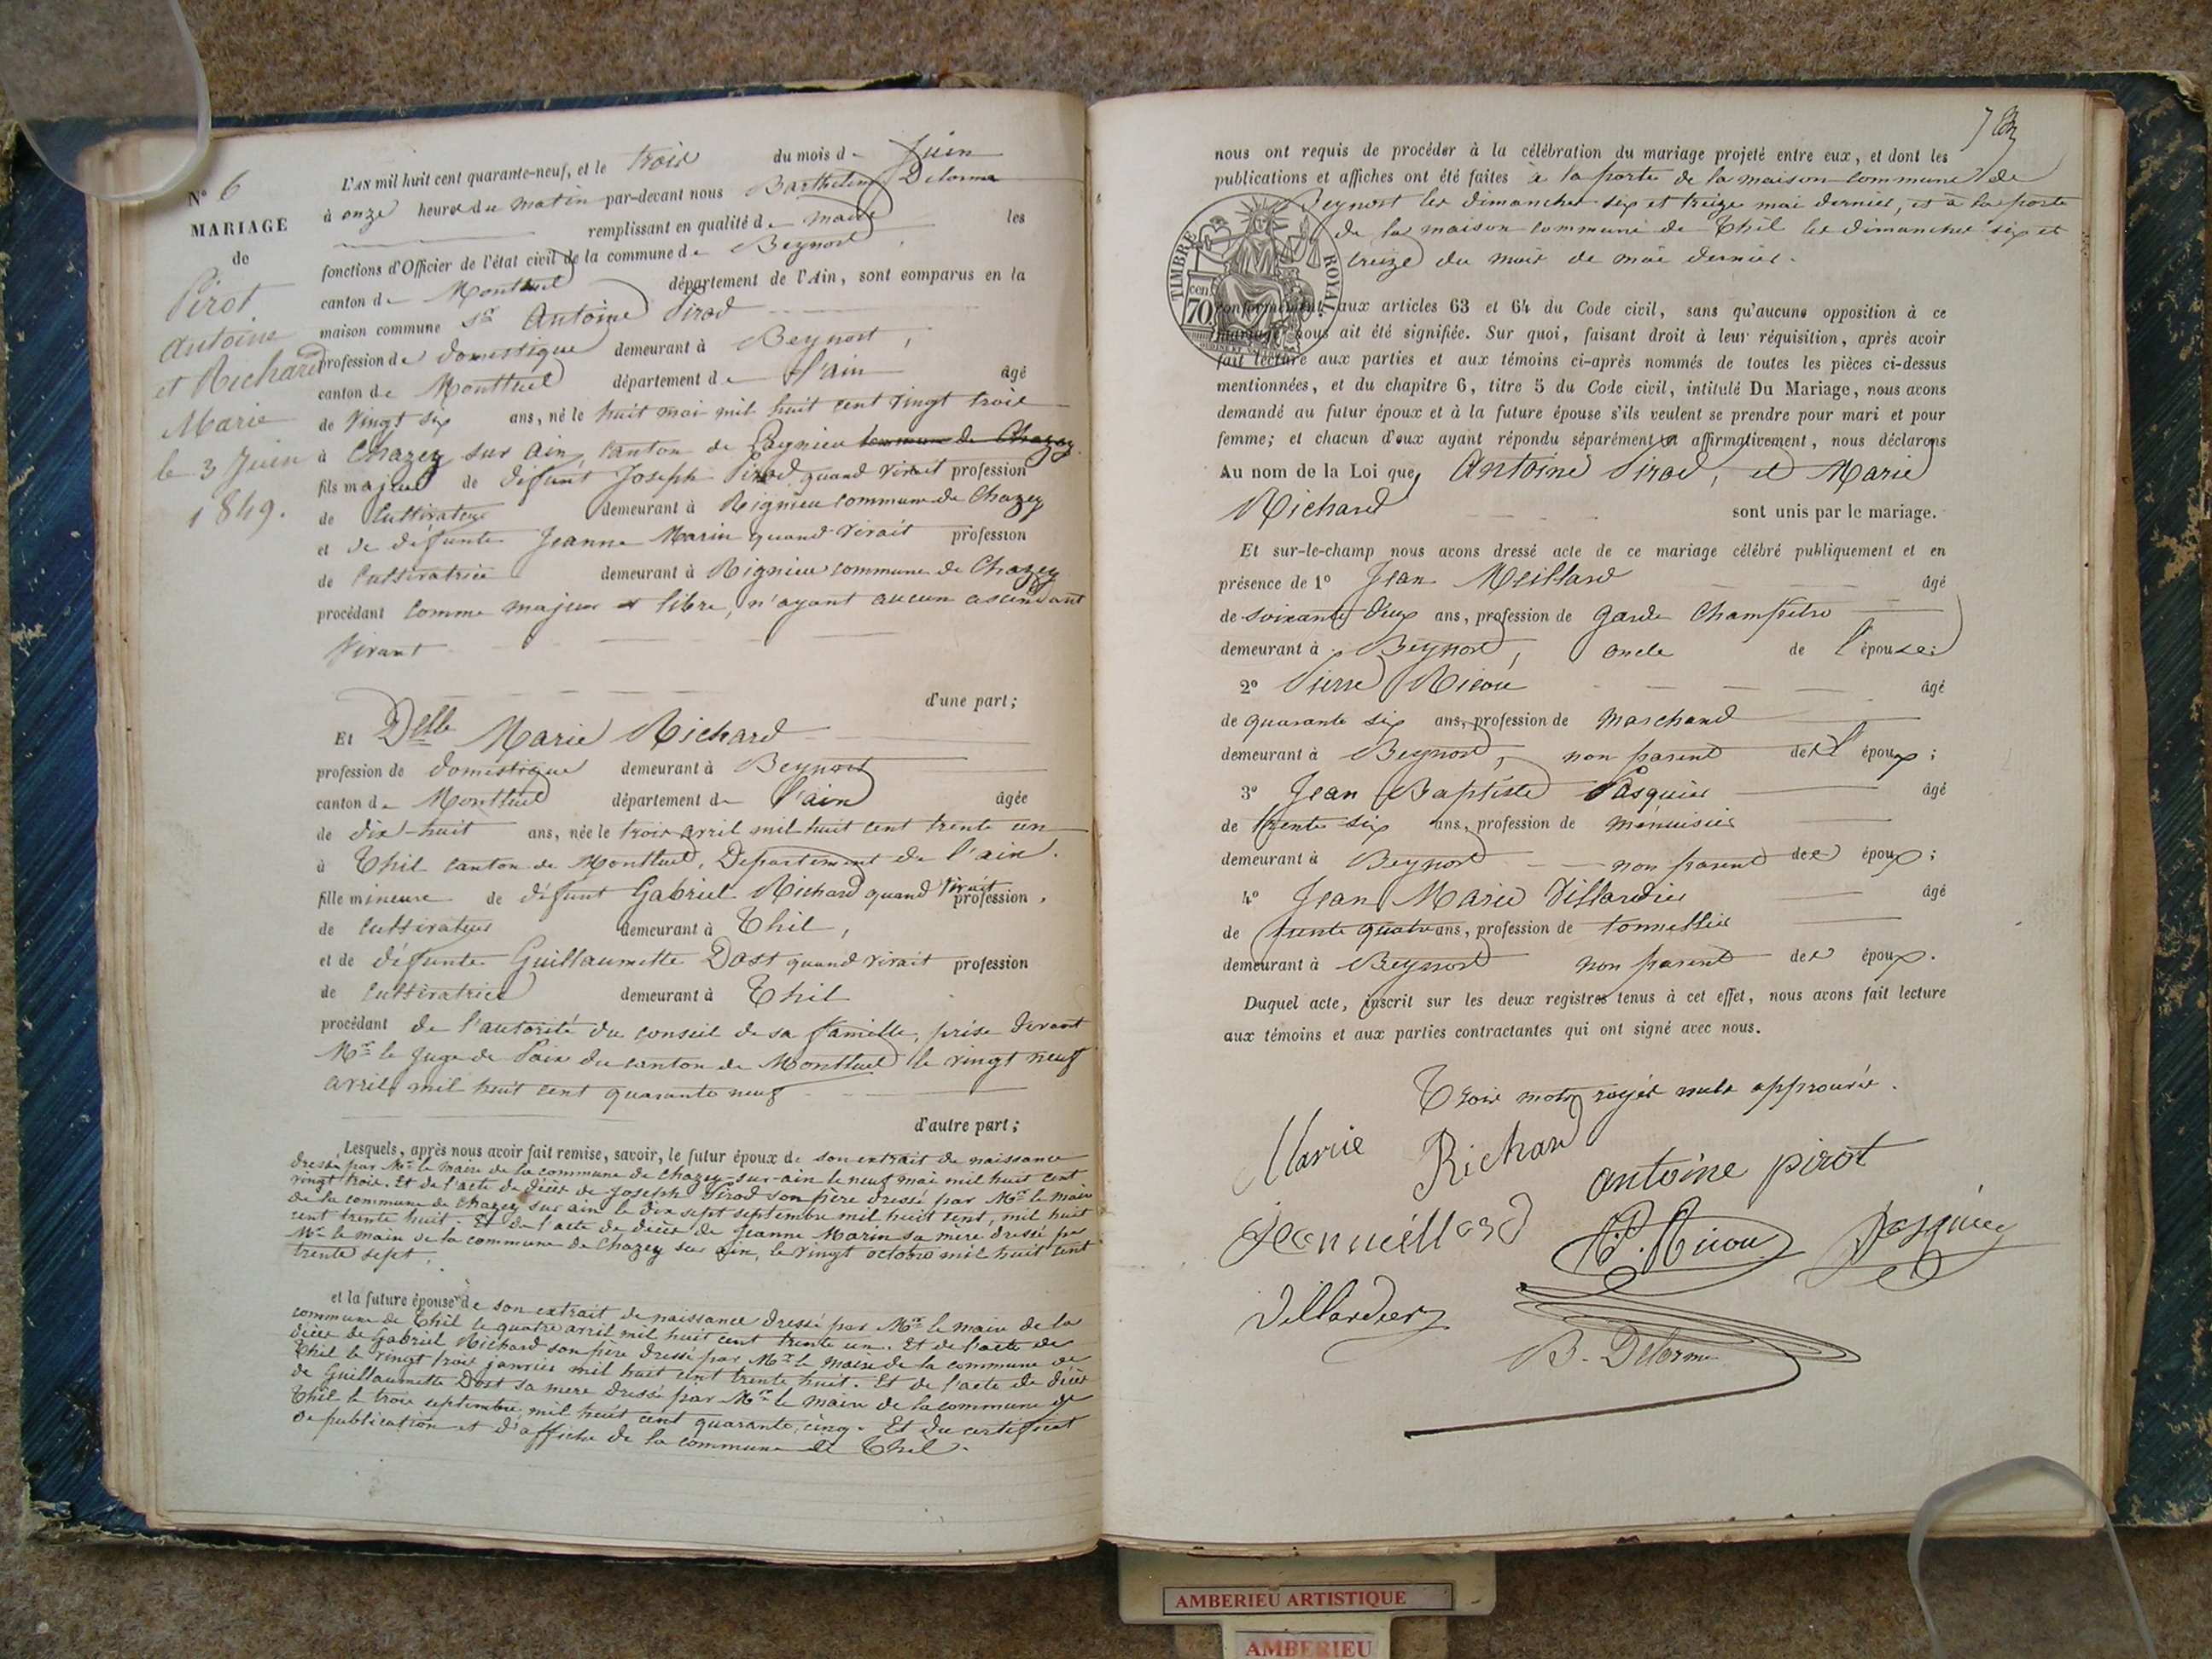 N° 6
MARIAGE
de
Pirot
Antoine
et Richard
Marie
le 3 Juin
1849.
L'AN mil huit cent quarante-neuf, et le trois du mois de Juin
à onze heures du matin par-devant nous Barthelemy Delorme
remplissant en qualité de maire les
fonctions d'Officier de l'état civil de la commune de Beynost,
canton de Montluel département de l'Ain, sont comparus en la
maison commune Sr Antoine Pirod
profession de domestique demeurant à Beynost,
canton de Montluel département de l'ain âgé
de vingt six ans, né le huit mai mil huit cent vingt trois
à Chazey sur ain, canton de Lagnieu commune de Chazey
fils majeur de défunt Joseph Pirod quand vivait profession
de Cultivateur demeurant à Rignieu commune de Chazey
et de défunte Jeanne Marin quand vivait profession
de Cultivatrice demeurant à Rignieu commune de Chazey
procédant comme majeur et libre, n'ayant aucun ascendant
vivant
d'une part;
Et Delle Marie Richard
profession de domestique demeurant à Beynost
canton de Montluel département de l'ain âgée
de dix-huit ans, née le trois avril mil huit cent trente un
à Thil canton de Montluel, Département de l'ain.
fille mineure de défunt Gabriel Richard quand vivait profession,
de Cultivateur demeurant à Thil,
et de défunte Guillaumette Dost quand vivait profession
de Cultivatrice demeurant à Thil
procédant de l'autorité du conseil de sa famille, prise devant
Mr le Juge de Paix du canton de Montluel le vingt neuf
avril mil huit cent quarante neuf
d'autre part;
Lesquels, après nous avoir fait remise, savoir, le futur époux de son extrait de naissance
dressé par Mr le maire de la commune de Chazey-sur-ain le neuf mai mil huit cent
vingt trois. Et de l'acte de décès de Joseph Pirod son père dressé par Mr le maire
de la commune de Chazey sur ain le dix sept septembre mil huit cent, mil huit
cent trente huit. Et de l'acte de décès de Jeanne Marin sa mère dressé par
Mr le maire de la commune de Chazey sur ain, le vingt octobre mil huit cent
trente sept.
et la future épouse de son extrait de naissance dressé par Mr le maire de la
commune de Thil le quatre avril mil huit cent trente un. Et de l'acte de
décès de Gabriel Richard son père dressé par Mr le maire de la commune de
Thil le vingt trois janvier mil huit cent trente huit. Et de l'acte de décès
de Guillaumette Dost sa mère dressé par Mr le maire de la commune de
Thil le trois septembre mil huit cent quarante cinq. Et du certificat
de publication et d'affiche de la commune de Thil.
7
nous ont requis de procéder à la célébration du mariage projeté entre eux, et dont les
publications et affiches ont été faites à la porte de la maison commune de
Beynost les dimanches six et treize mai dernier, et à la porte
de la maison commune de Thil les dimanches six et
treize du mois de mai dernier.
TIMBRE ROYAL
70 cen
conformément aux articles 63 et 64 du Code civil, sans qu'aucune opposition à ce
mariage nous ait été signifiée. Sur quoi, faisant droit à leur réquisition, après avoir
fait lecture aux parties et aux témoins ci-après nommés de toutes les pièces ci-dessus
mentionnées, et du chapitre 6, titre 5 du Code civil, intitulé Du Mariage, nous avons
demandé au futur époux et à la future épouse s'ils veulent se prendre pour mari et pour
femme; et chacun d'eux ayant répondu séparément et affirmativement, nous déclarons
Au nom de la Loi que, Antoine Pirod, et Marie
Richard sont unis par le mariage.
Et sur-le-champ nous avons dressé acte de ce mariage célébré publiquement et en
présence de 1° Jean Meillard âgé
de soixante deux ans, profession de garde Champêtre
demeurant à Beynost, oncle de l'épouse;
2° Pierre Ricou âgé
de quarante six ans, profession de marchand
demeurant à Beynost, non parent des époux;
3° Jean Baptiste Pasquier âgé
de trente six ans, profession de menuisier
demeurant à Beynost non parent des époux;
4° Jean Marie Villardier âgé
de trente quatre ans, profession de tonnellier
demeurant à Beynost non parent des époux.
Duquel acte, inscrit sur les deux registres tenus à cet effet, nous avons fait lecture
aux témoins et aux parties contractantes qui ont signé avec nous.
Trois mots rayés nuls approuvés.
Marie Richard
antoine pirot
Jean meillard
P. Ricou
Pasquier
Villardier
B. Delorme
AMBERIEU ARTISTIQUE
AMBERIEU